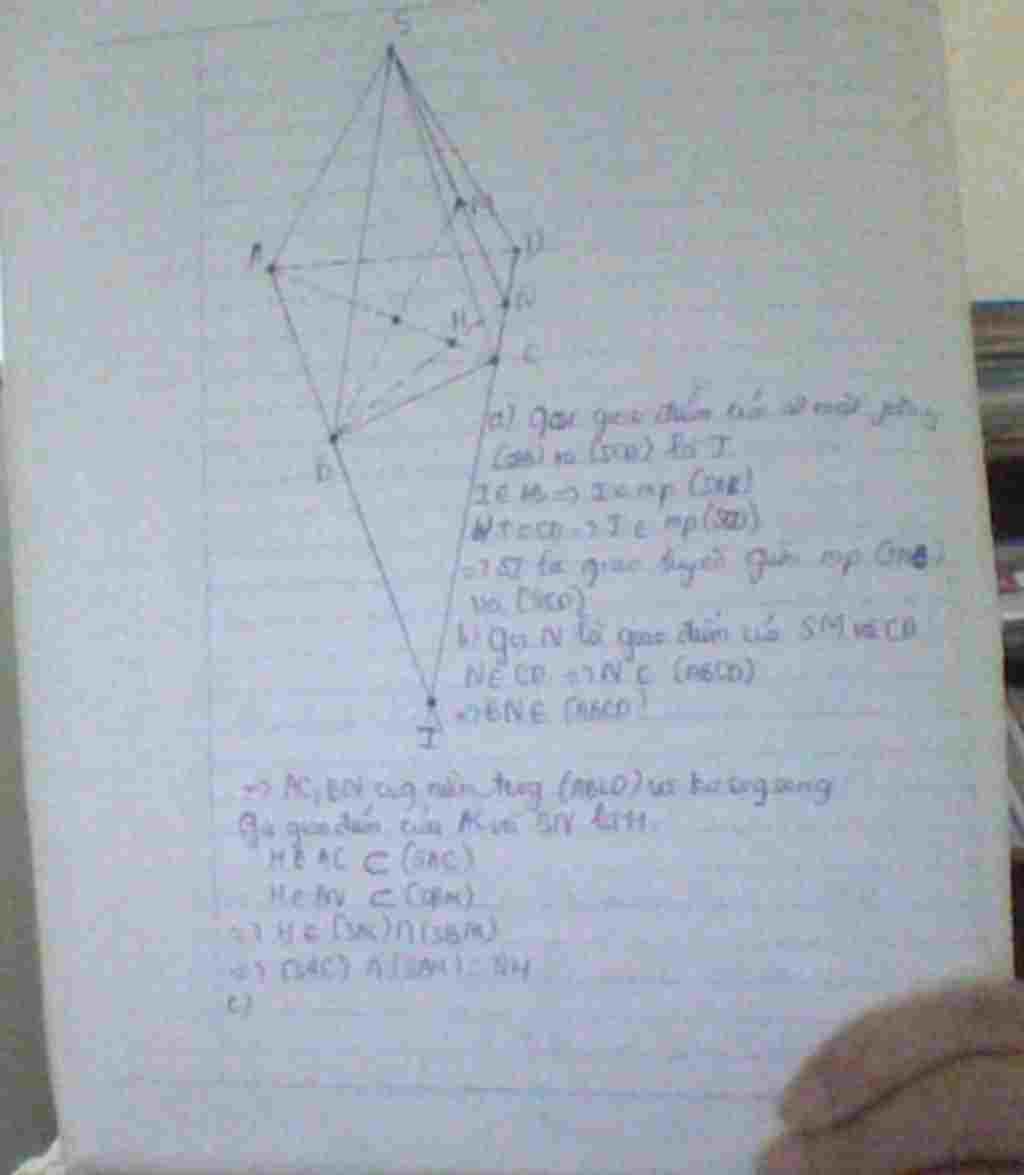 S
A
D
N
H
C
B
a) Gọi giao điểm của mặt phẳng
(SAB) và (SCD) là I
I ∈ AB => I ∈ mp (SAB)
I ∈ CD => I ∈ mp (SCD)
=> SI là giao tuyến giữa mp (SAB)
và (SCD)
b) Gọi N là giao điểm của SM và CD
N ∈ CD => N ⊂ (ABCD)
=> BN ∈ (ABCD)
I
=> AC, BN cùng nằm trong (ABCD) và song song
Gọi giao điểm của AC và BN là H.
H ∈ AC ⊂ (SAC)
H ∈ BN ⊂ (SBM)
=> H ∈ (SAC) ∩ (SBM)
=> (SAC) ∩ (SBM) = SH
c)